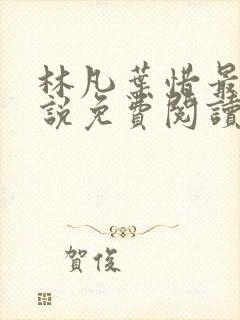 林凡葉惜最
說免費閱讀
賀俊